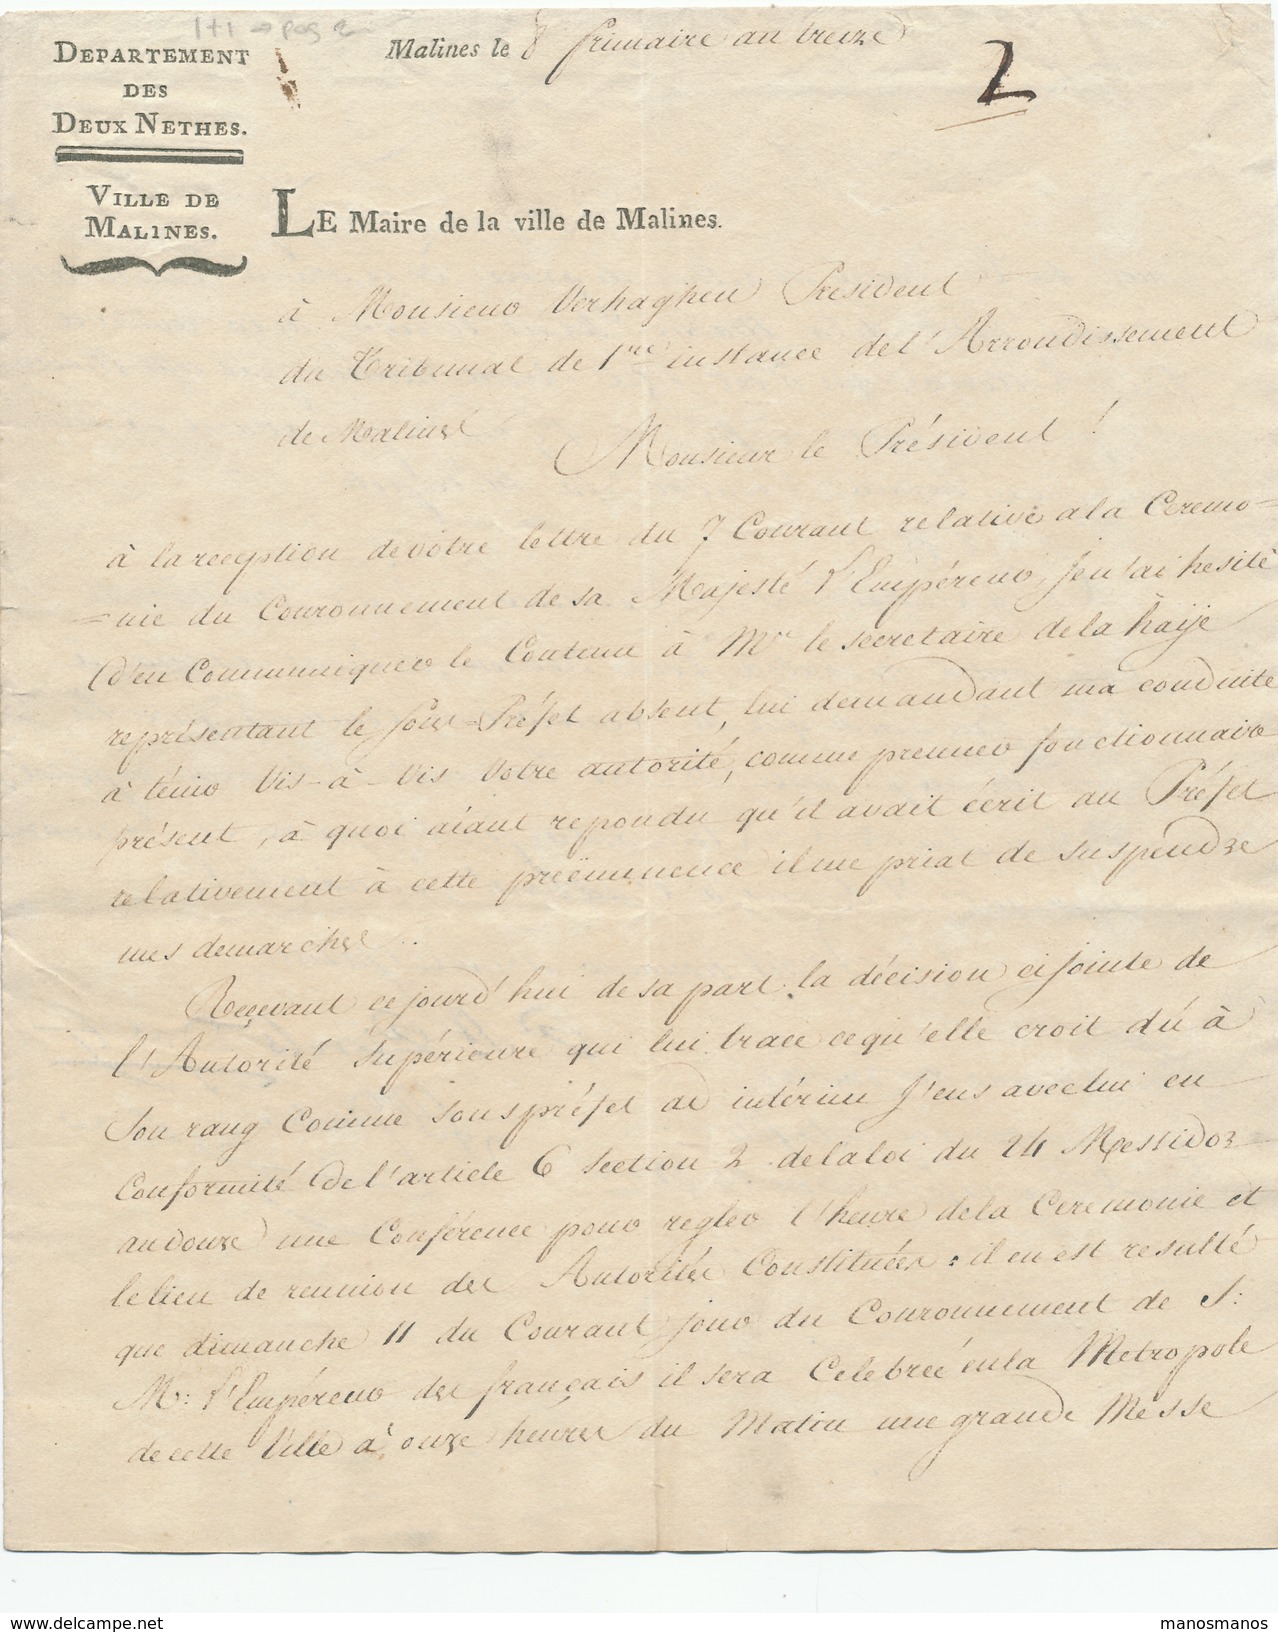 1+1 → pag 2
DEPARTEMENT
DES
DEUX NETHES.
VILLE DE
MALINES.
Malines le 8 frimaire an treize
2
LE Maire de la ville de Malines.
à Monsieur Verhaghen Président
du Tribunal de 1re instance de l'Arrondissement
de Malines
Monsieur le Président !
à la reception de vôtre lettre du 7 Courant relative a la Ceremo=
=nie du Couronnement de sa Majesté l'Empéreur, Je n'ai hesité
d'en Communiquer le Contenu à Mr le secretaire de la haije
représentant le sous-Préfet absent, lui demandant ma conduite
à ténir Vis-à-Vis Votre autorité, comme premier fonctionnaire
présent, à quoi aïant repondu qu'il avait écrit au Préfet
relativement à cette prëeminence il me priat de suspendre
mes demarches ..
Reçevant ce jourd'hui de sa part la décision ci jointe de
l'Autorité supérieure qui lui trace ce qu'elle croit dú à
son rang Comme souspréfet ad intérim J'eus avec lui en
Conformité de l'article 6 section 2 de la loi du 24 Messidor
an douze une Conférence pour regler l'heure de la Ceremonie et
le lieu de reunion des Autorités Constituées : il en est resulté
que dimanche 11 du Courant, jour du Couronnement de S:
M: l'Empéreur des français il sera Celebreé en la Metropole
de cette Ville à onze heures du Matin une grande Messe
www.delcampe.net
manosmanos